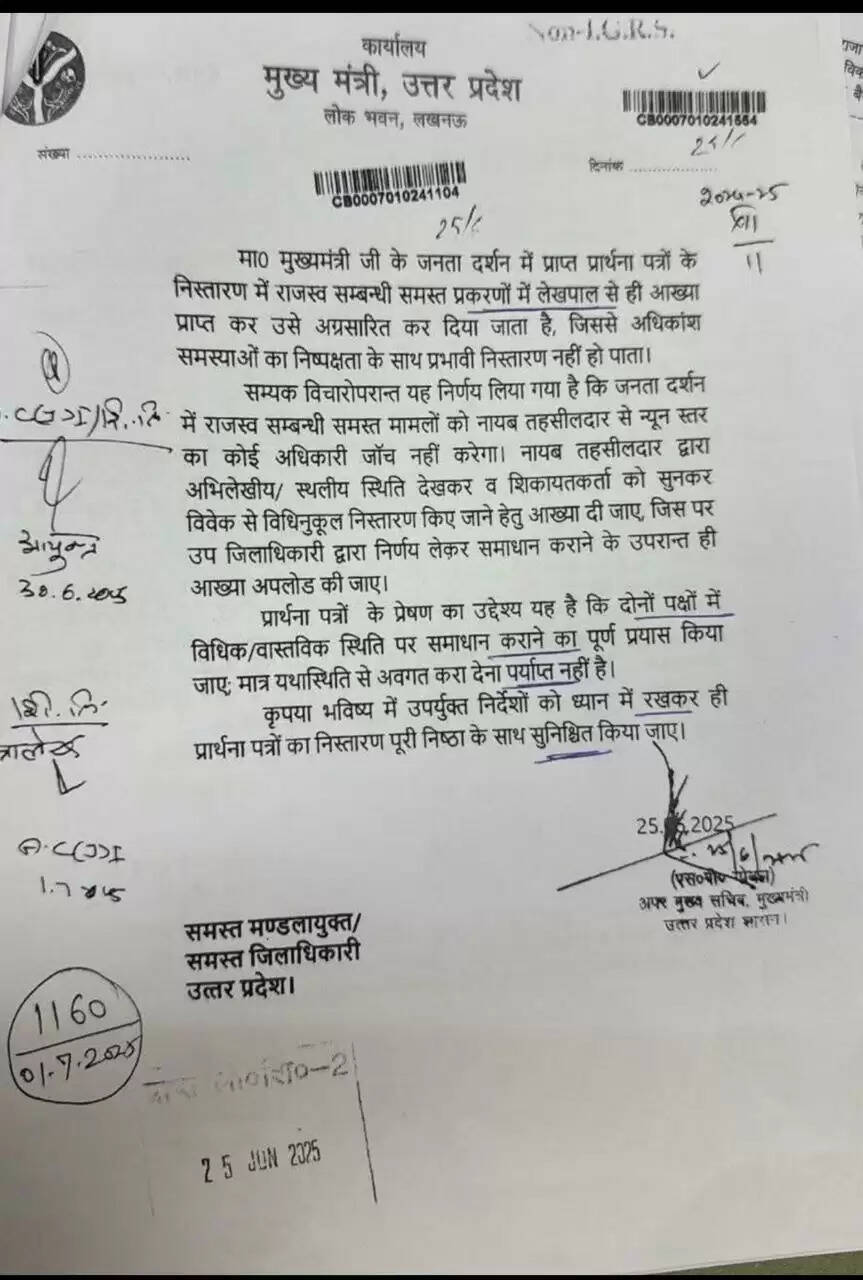 Non-I.G.R.S.
कार्यालय
मुख्य मंत्री, उत्तर प्रदेश
लोक भवन, लखनऊ
CB0007010241554
संख्या ......................
दिनांक ..................
CB0007010241104
2024-25
11
मा0 मुख्यमंत्री जी के जनता दर्शन में प्राप्त प्रार्थना पत्रों के
निस्तारण में राजस्व सम्बन्धी समस्त प्रकरणों में लेखपाल से ही आख्या
प्राप्त कर उसे अग्रसारित कर दिया जाता है, जिससे अधिकांश
समस्याओं का निष्पक्षता के साथ प्रभावी निस्तारण नहीं हो पाता।
सम्यक विचारोपरान्त यह निर्णय लिया गया है कि जनता दर्शन
में राजस्व सम्बन्धी समस्त मामलों को नायब तहसीलदार से न्यून स्तर
का कोई अधिकारी जॉच नहीं करेगा। नायब तहसीलदार द्वारा
अभिलेखीय/ स्थलीय स्थिति देखकर व शिकायतकर्ता को सुनकर
विवेक से विधिनुकूल निस्तारण किए जाने हेतु आख्या दी जाए, जिस पर
उप जिलाधिकारी द्वारा निर्णय लेकर समाधान कराने के उपरान्त ही
आख्या अपलोड की जाए।
प्रार्थना पत्रों के प्रेषण का उद्देश्य यह है कि दोनों पक्षों में
विधिक/वास्तविक स्थिति पर समाधान कराने का पूर्ण प्रयास किया
जाए; मात्र यथास्थिति से अवगत करा देना पर्याप्त नहीं है।
कृपया भविष्य में उपर्युक्त निर्देशों को ध्यान में रखकर ही
प्रार्थना पत्रों का निस्तारण पूरी निष्ठा के साथ सुनिश्चित किया जाए।
आयुक्त
30.6.2025
1.7.2025
25. 2025
(एस०पी० गोयल)
अपर मुख्य सचिव, मुख्यमंत्री
उत्तर प्रदेश शासन।
समस्त मण्डलायुक्त/
समस्त जिलाधिकारी
उत्तर प्रदेश।
1160
01.7.2025
25 JUN 2025